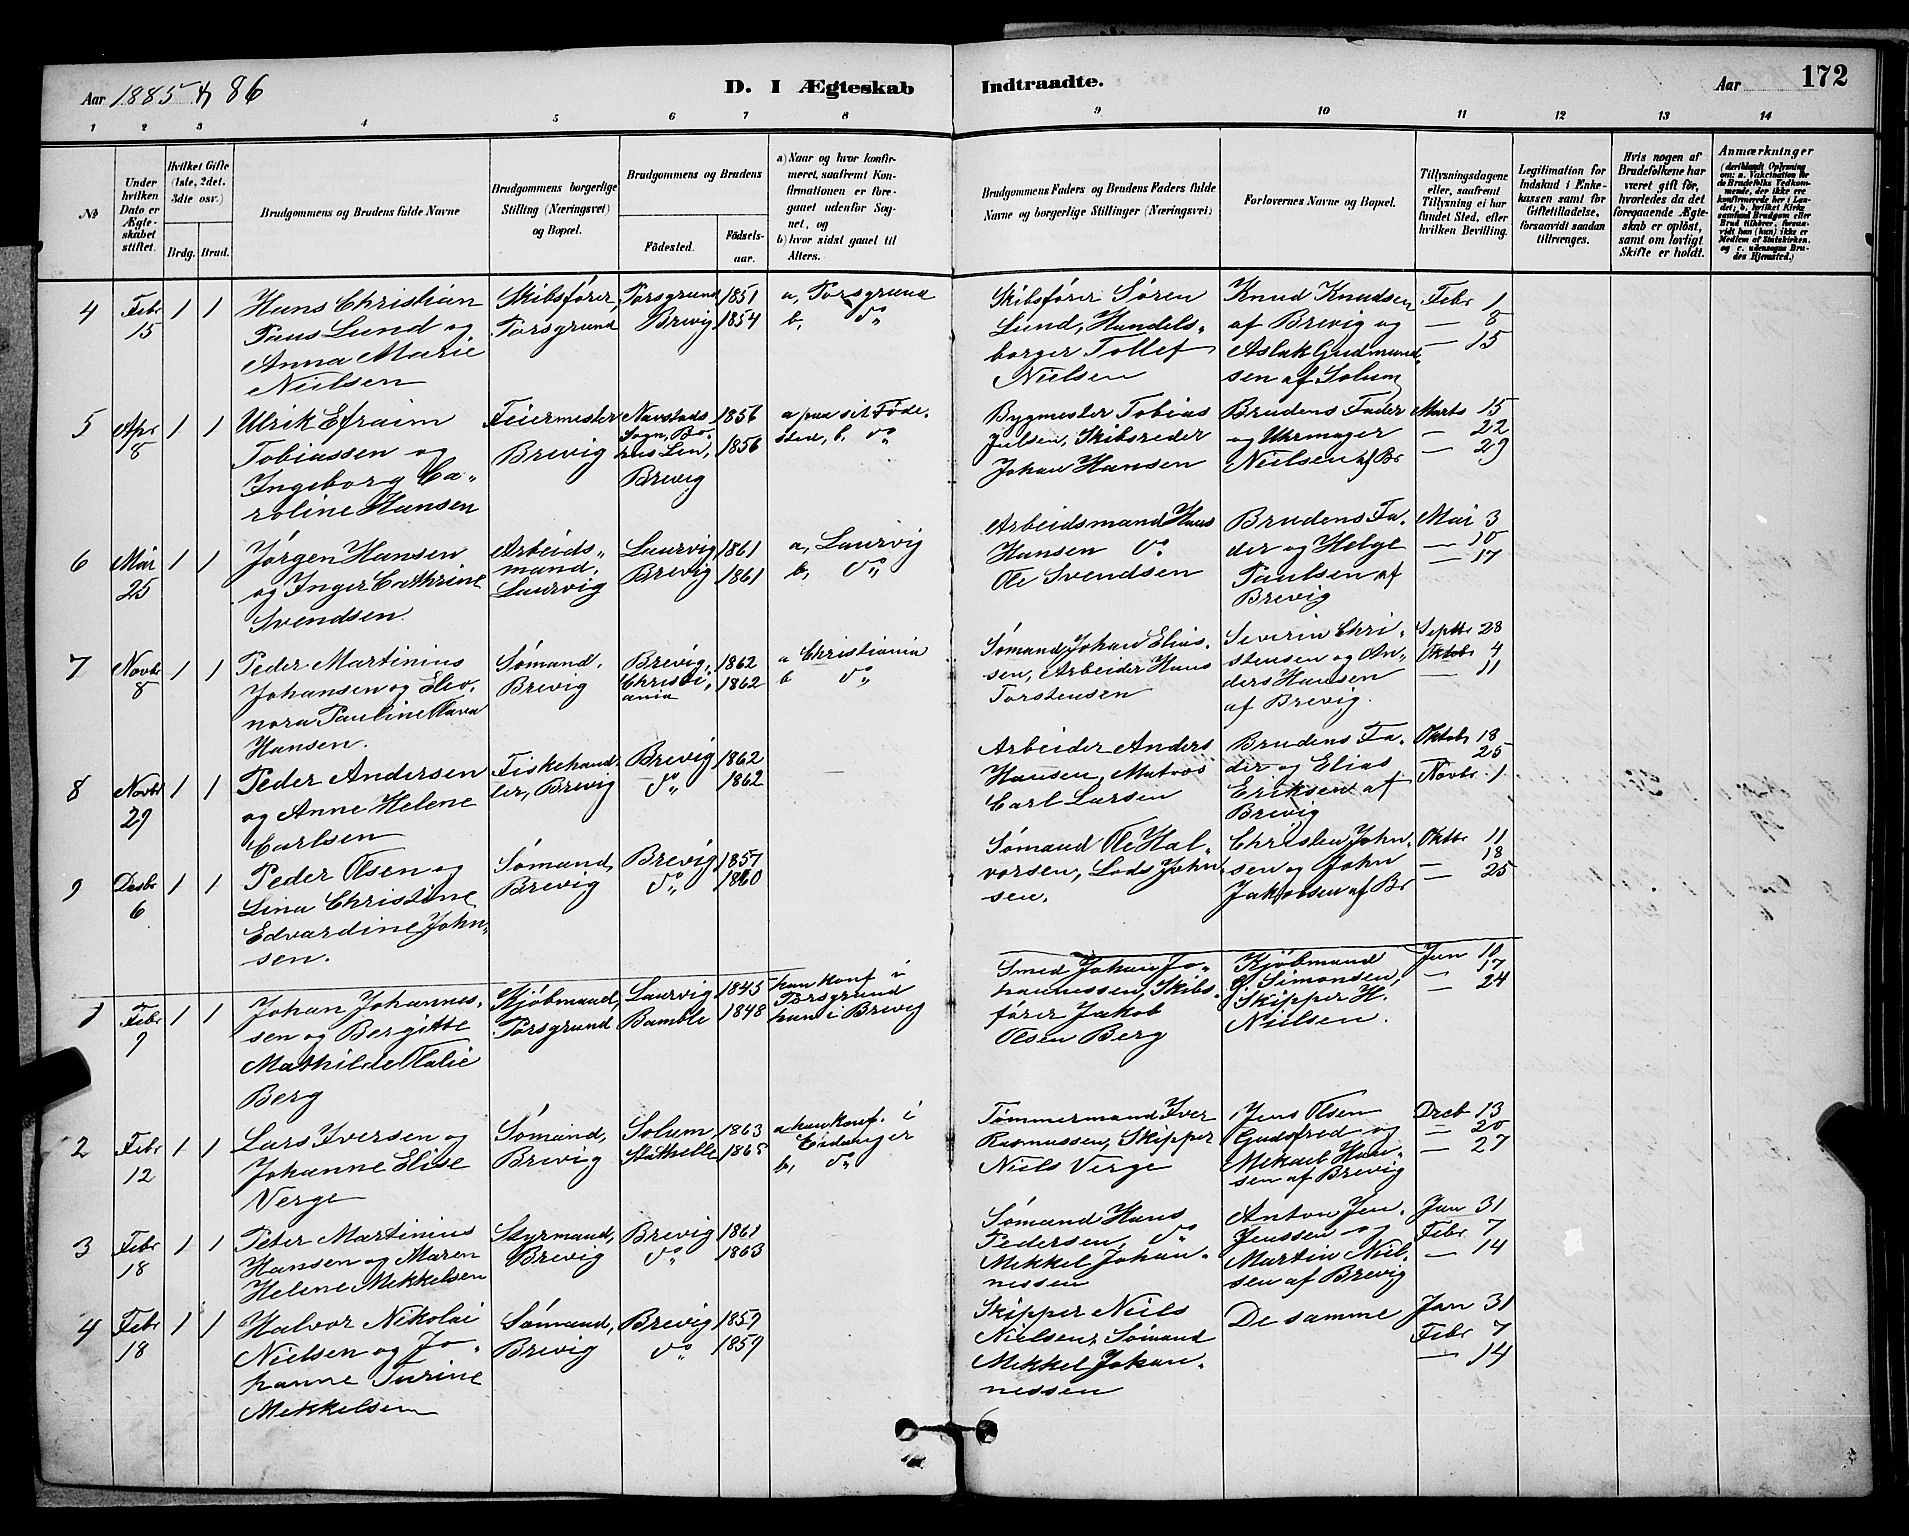 Aar 1885 & 86
D. I Ægteskab Indtraadte.
Aar 172
1 2 3 4 5 6 7 8 9 10 11 12 13 14
No
Under hvilken Dato er Ægteskabet stiftet.
Hvilket Gifte (1ste, 2det, 3die osv.)
Brdg. Brud.
Brudgommens og Brudens fulde Navne
Brudgommens borgerlige Stilling (Næringsvei) og Bopæl.
Brudgommens og Brudens
Födested. Födselsaar.
a) Naar og hvor konfirmeret, saafremt Konfirmationen er foregaaet udenfor Sognet, og
b) hvor sidst gaaet til Alters.
Brudgommens Faders og Brudens Faders fulde Navne og borgerlige Stillinger (Næringsvei)
Forlovernes Navne og Bopæl.
Tillysningsdagene eller, saafremt Tillysning ei har fundet Sted, efter hvilken Bevilling.
Legitimation for Indskud i Enkekassen samt for Giftetilladelse, forsaavidt saadan tiltrænges.
Hvis nogen af Brudefolkene har været gift för, hvorledes da det foregaaende Ægteskab er oplöst, samt om lovligt Skifte er holdt.
Anmærkninger (deriblandt Oplysning om: a. Vakcination for de Brudefolks Vedkommende, der ikke ere konfirmerede her i Landet; b. hvilket Kirkesamfund Brudgom eller Brud tilhöre, forsaavidt han (hun) ikke er Medlem af Statskirken, og c. udensogns Brudes Hjemsted.)
4 Febr 15 1 1 Hans Christian Paus Lund og Anna Marie Nielsen
Skibsfører, Porsgrund
Porsgrund 1851
Brevig 1854
a, Porsgrund
b, do
Skibsfører Søren Lund, Handelsborger Tollef Nielsen
Knud Knudsen af Brevig og Aslak Gudmundsen af Solum
Febr 1
— 8
— 15
5 Apr 8 1 1 Ulrik Efraim Tobiassen og Ingeborg Caroline Hansen
Feiermester Brevig
Navstads Sogn, Bohus Len, 1856
Brevig 1856
a paa sit Fødested, b, do
Bygmester Tobias Julsen, Skibsreder Johan Hansen
Brudens Fader og Uhrmager Nielsen af Br
Marts 15
— 22
— 29
6 Mai 25 1 1 Jørgen Hansen og Inger Cathrine Svendsen
Arbeidsmand, Laurvig
Laurvig 1861
Brevig 1861
a, Laurvig
b, do
Arbeidsmand Hans Hansen do Ole Svendsen
Brudens Fader og Helge Paulsen af Brevig
Mai 3
— 10
— 17
7 Novbr 8 1 1 Peder Martinius Johansen og Eleonora Pauline Olava Hansen.
Sømand, Brevig
Brevig, 1862
Christiania 1862
a Christiania
b do
Sømand Johan Eliassen, Arbeider Hans Torstensen
Severin Christensen og Anders Hansen af Brevig.
Septbr 28
Oktobr 4
— 11
8 Novbr 29 1 1 Peder Andersen og Anne Helene Carlsen
Fiskehandler, Brevig
Brevig 1862
do 1862
—
Arbeider Anders Hansen, Matros Carl Larsen
Brudens Fader og Elias Eriksen af Brevig
Oktobr 18
25
Novbr 1
9 Desbr 6 1 1 Peder Olsen og Lina Christine Edvardine Johnsen.
Sømand, Brevig
Brevig 1857
do 1860
Sømand Ole Halvorsen, Lods John Johnsen.
Christen Johnsen og John Jakobsen af Br
Oktbr 11
— 18
— 25
1 Febr 9 1 1 Johan Johannessen og Bergitte Mathilde Olalie Berg
Kjøbmand, Porsgrund
Laurvig 1845
Bamble 1848
han konf i Porsgrund
hun i Brevig
Smed Johan Johannessen, Skibsfører Jakob Olsen Berg
Kjøbmand G. Simonsen, Skipper H. Nielsen.
Jan 10
— 17
— 24
2 Febr 12 1 1 Lars Iversen og Johanne Elise Verge
Sømand, Brevig
Solum, 1863
Stathelle 1865
a han konf. i Eidanger
b, do
Tømmermand Iver Rasmussen, Skipper Niels Verge
Jens Olsen Gudsfred og Mekael Hansen af Brevig
Decb 13
— 20
— 27
3 Febr 18 1 1 Peter Martinius Hansen og Maren Helene Mekkelsen
Styrmand, Brevig
Brevig 1861
do 1863
Sømand Hans Pedersen, do Mekkel Johannessen
Anton Jen. Jenssen og Martin Nielsen af Brevig
Jan 31
Febr 7
— 14
4 Febr 18 1 1 Halvor Nikolai Nielsen og Johanne Turine Mekkelsen
Sømand, Brevig
Brevig 1859
do 1859
Skipper Niels Nielsen, Sømand Mekkel Johannessen
De samme
Jan 31
Febr 7
— 14